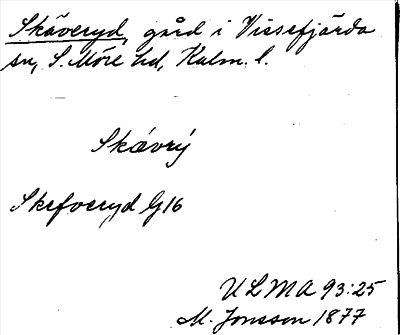 Skäveryd, gård i Vissefjärda
sn, S. Möre hd, Kalm. l.
Skævrý
Skefveryd G16
ULMA 93:25
M. Jonsson 1877